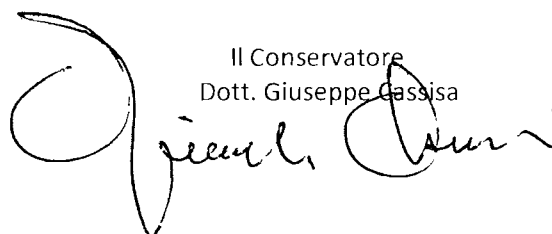 Il Conservatore
Dott. Giuseppe Cassisa